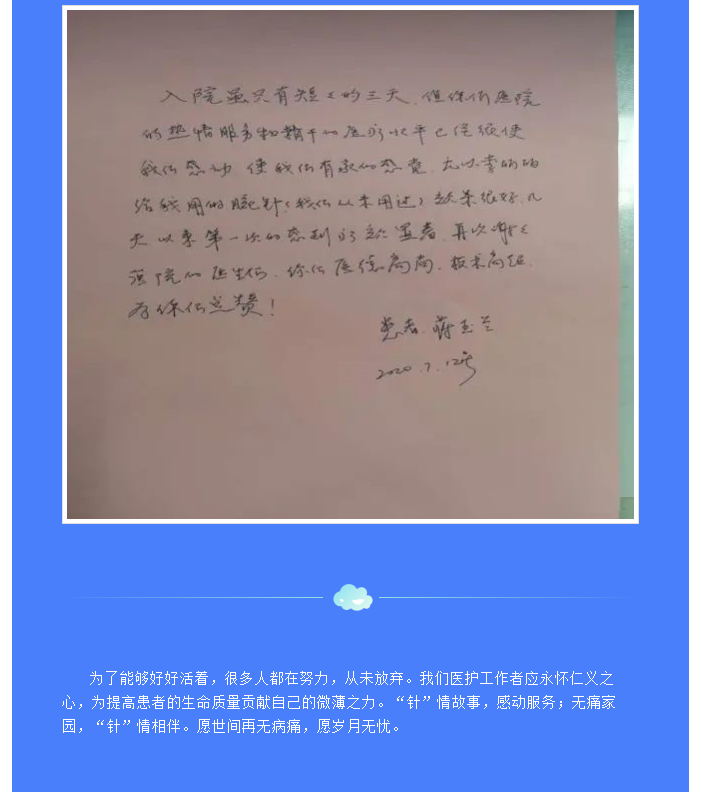 入院虽只有短々的三天，但你们医院
的热情服务和精干的医疗水平已经须使
我们感动，使我们有家的感觉，尤以李
给我用的腕针（我们从未用过）效果很好，几
天以来第一次的感到疗效显着，再次谢々
院的医生们，你们医德高尚，技术高超，
为你们点赞！
患者：蒋玉兰
2020.7.12号
为了能够好好活着，很多人都在努力，从未放弃。我们医护工作者应永怀仁义之
心，为提高患者的生命质量贡献自己的微薄之力。“针”情故事，感动服务；无痛家
园，“针”情相伴。愿世间再无病痛，愿岁月无忧。